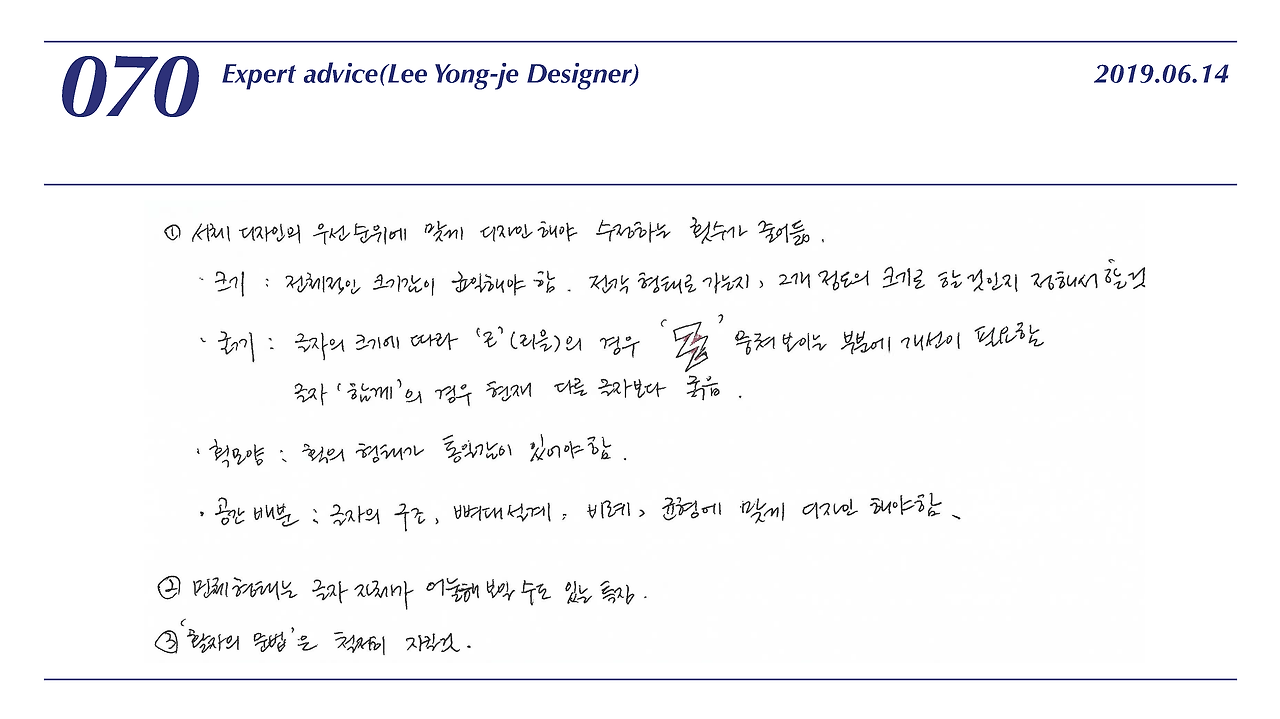 070
Expert advice(Lee Yong-je Designer)
2019.06.14
① 서체 디자인의 우선순위에 맞게 디자인해야 수정하는 횟수가 줄어듦.
· 크기 : 전체적인 크기감이 균일해야 함. 전각 형태로 가는지, 2개 정도의 크기로 할 것인지 정해서 할 것
· 굵기 : 글자의 크기에 따라 'ㄹ'(리을)의 경우 ' ' 뭉쳐보이는 부분에 개선이 필요함
글자 '함께'의 경우 현재 다른 글자보다 굵음.
· 획모양 : 획의 형태가 통일감이 있어야 함.
· 공간 배분 : 글자의 구조, 뼈대설계, 비례, 균형에 맞게 디자인 해야함.
② 형태는 글자 자체가 어눌해 보일 수도 있는 특징.
③ '활자의 문법'은 철저히 지킬것.